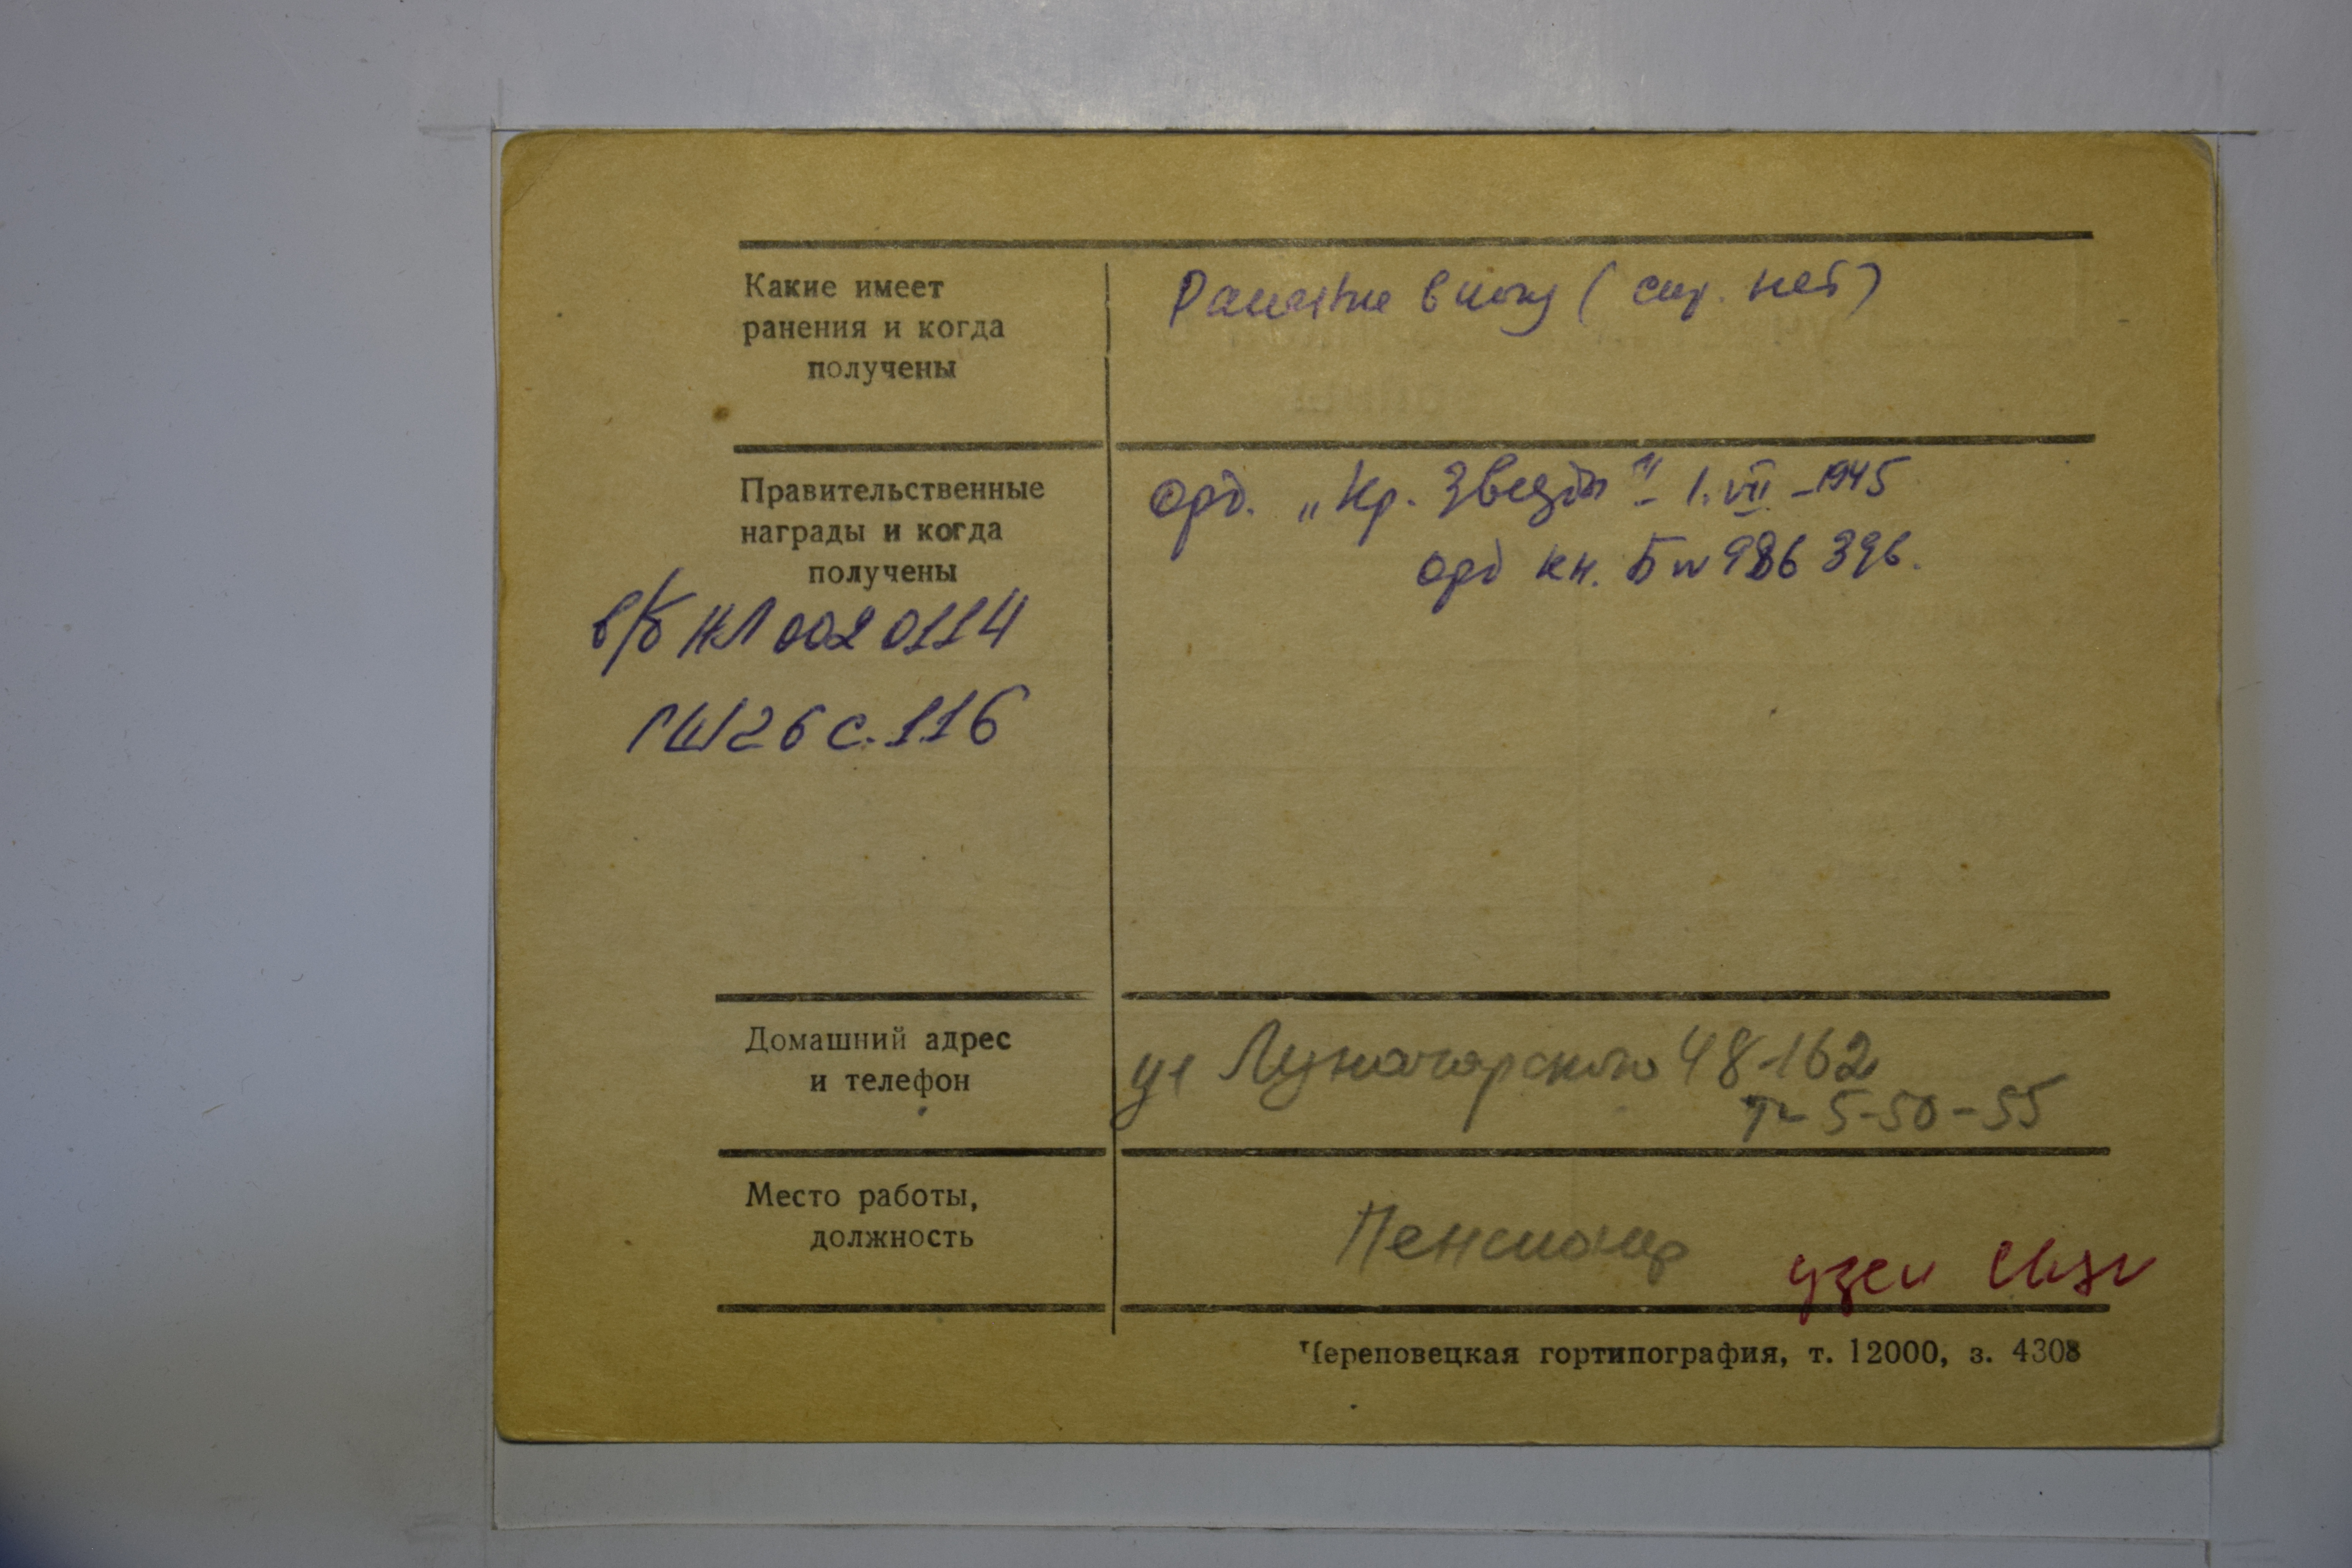 Какие имеет
ранения и когда
получены
Ранение в ногу (спр. нет)
Правительственные
награды и когда
получены
орд. „Кр. Звезды“ - 1.VII-1945
орд кн. Б № 986 396.
в/б НЛ 0020114
ГШ 26 с. 116
Домашний адрес
и телефон
ул Луначарского 48-162
т- 5-50-55
Место работы,
должность
Пенсионер
узел связи
Череповецкая гортипография, т. 12000, з. 4308